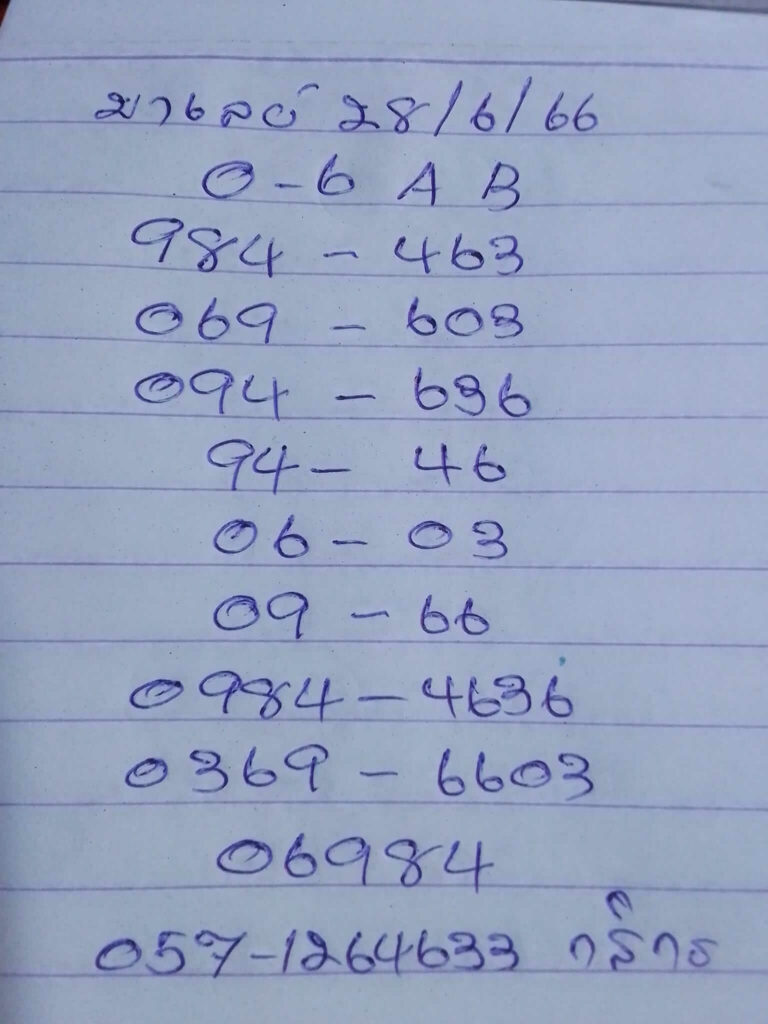 มาเลย์ 28/6/66
0-6 A B
984 - 463
069 - 603
094 - 636
94 - 46
06 - 03
09 - 66
0984 - 4636
0369 - 6603
06984
057-1264633